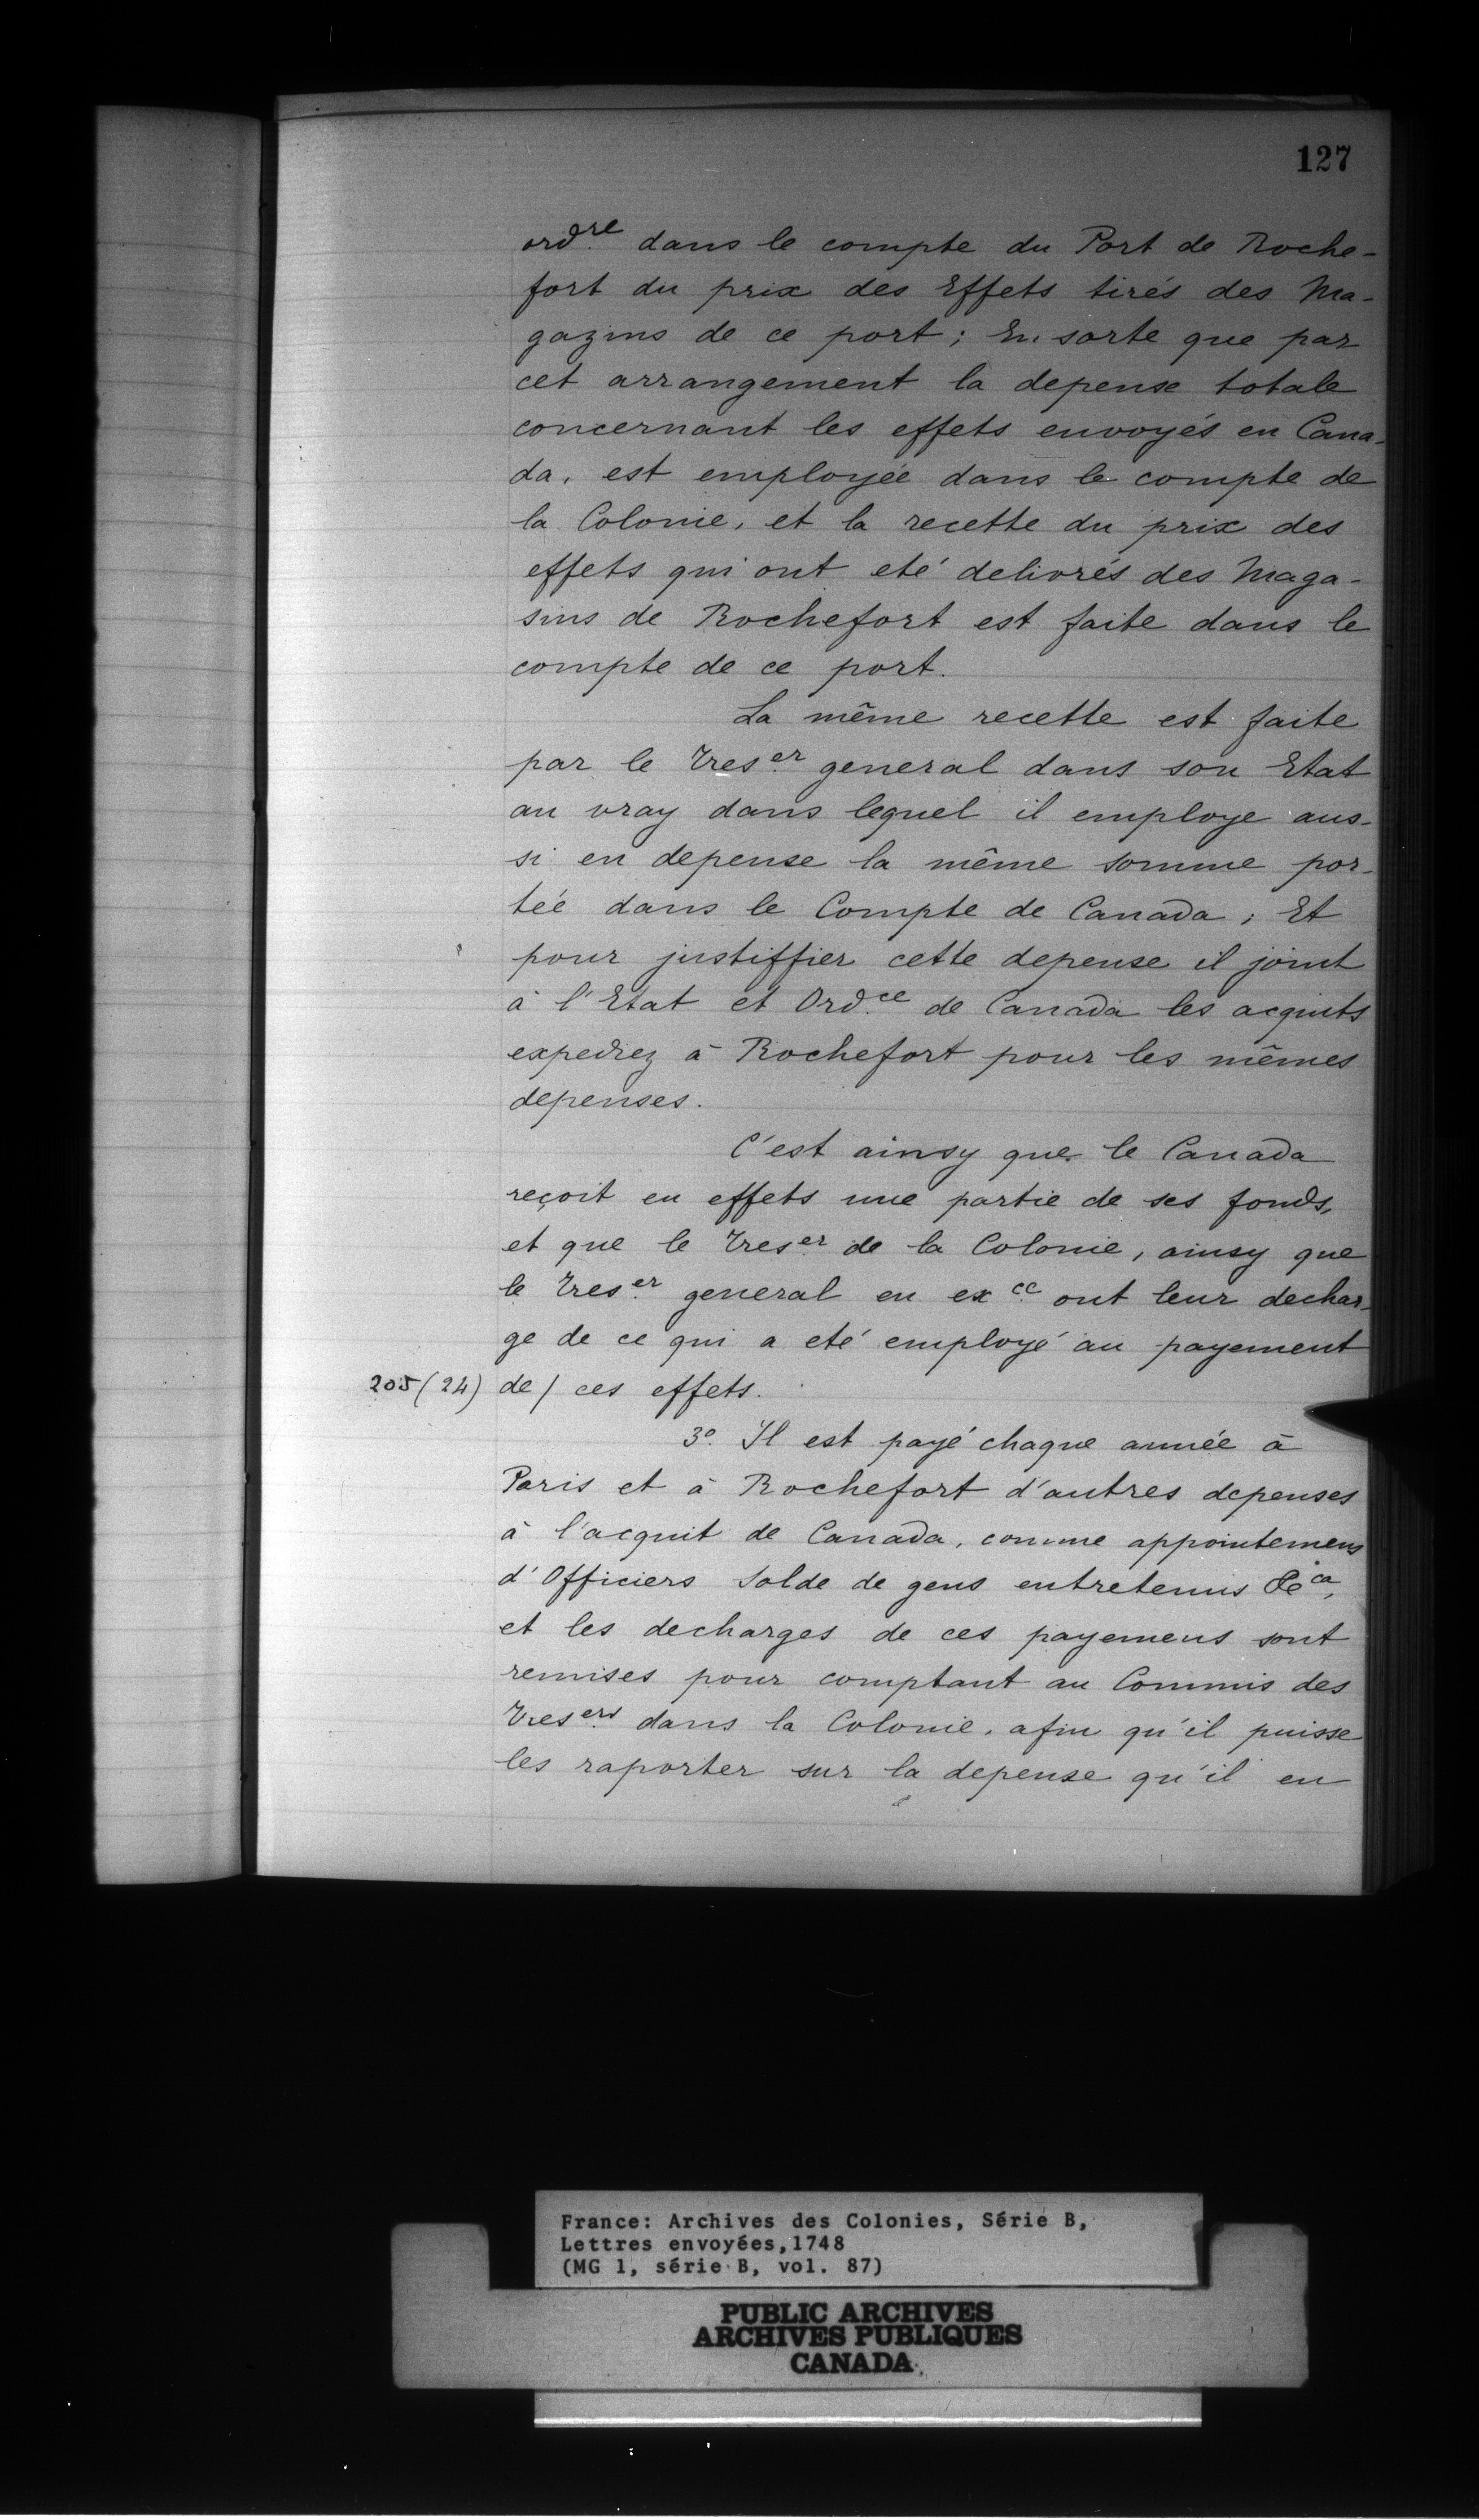 127
ord.re dans le compte du Port de Roche-
fort du prix des Effets tirés des Ma-
gazins de ce port ; En sorte que par
cet arrangement la depense totale
concernant les effets envoyés en Cana-
da, est employée dans le compte de
la Colonie, et la recette du prix des
effets qui ont eté delivrés des Maga-
sins de Rochefort est faite dans le
compte de ce port.
La même recette est faite
par le Tres.er general dans son Etat
au vray dans lequel il employe aus-
si en depense la même somme por-
tée dans le Compte de Canada ; Et
pour justiffier cette depense il joint
à l'Etat et Ord.ce de Canada les acquits
expediez à Rochefort pour les mêmes
depenses.
C'est ainsy que le Canada
reçoit en effets une partie de ses fonds,
et que le Tres.er de la Colonie, ainsy que
le Tres.er general en ex.ce ont leur dechar-
ge de ce qui a eté employé au payement
205 (24) de / ces effets.
3.o Il est payé chaque année à
Paris et à Rochefort d'autres depenses
à l'acquit de Canada, comme appointemens
d'Officiers Solde de gens entretenus &ca,
et les decharges de ces payemens sont
remises pour comptant au Commis des
Tres.ers dans la Colonie, afin qu'il puisse
les raporter sur la depense qu'il en
France: Archives des Colonies, Série B,
Lettres envoyées, 1748
(MG 1, série B, vol. 87)
PUBLIC ARCHIVES
ARCHIVES PUBLIQUES
CANADA